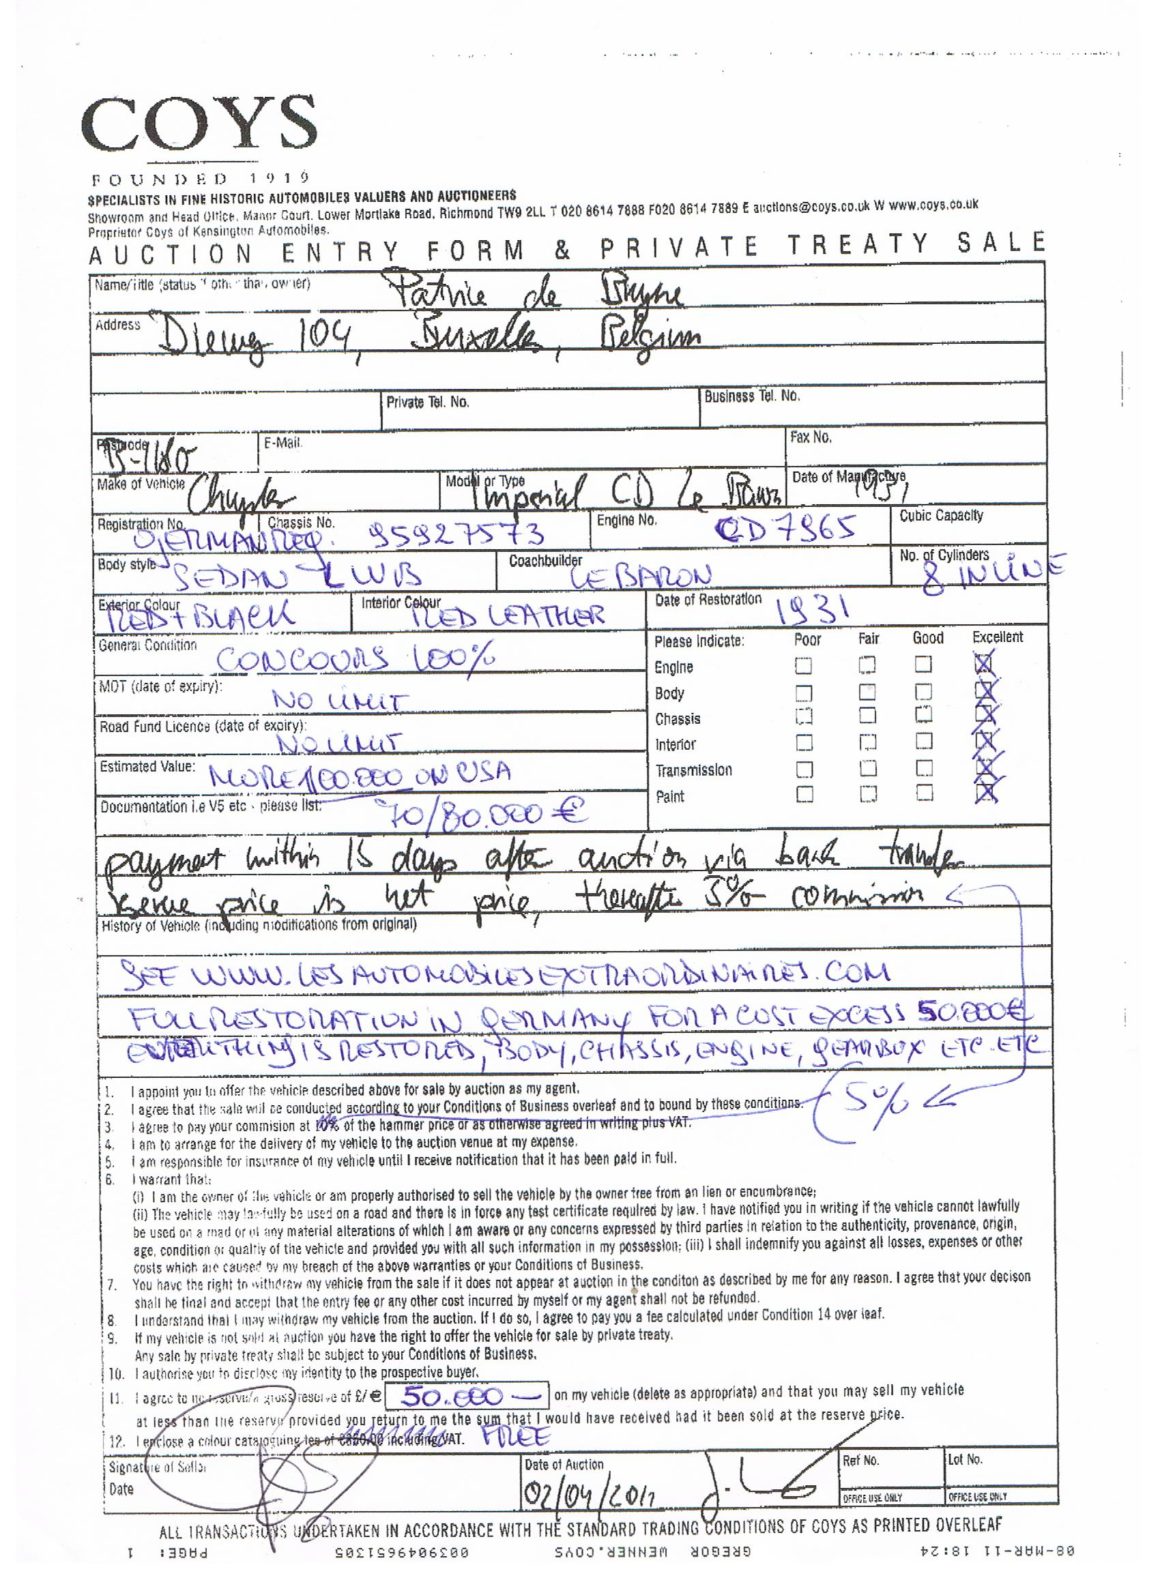 COYS
FOUNDED 1919
SPECIALISTS IN FINE HISTORIC AUTOMOBILES VALUERS AND AUCTIONEERS
Showroom and Head Office, Manor Court, Lower Mortlake Road, Richmond TW9 2LL T 020 8614 7888 F020 8614 7889 E auctions@coys.co.uk W www.coys.co.uk
Proprietor Coys of Kensington Automobiles.
AUCTION ENTRY FORM & PRIVATE TREATY SALE
Name/Title (status if other than owner) Patrice de
Address Dieweg 104, Bruxelles, Belgium
Private Tel. No. Business Tel. No.
Postcode E-Mail. Fax No.
Make of Vehicle Chrysler Model or Type Imperial CD Le Baron Date of Manufacture 1931
Registration No. GERMAN REG. Chassis No. 95927573 Engine No. CD7965 Cubic Capacity
Body style SEDAN LWB Coachbuilder LEBARON No. of Cylinders 8 INLINE
Exterior Colour RED + BLACK Interior Colour RED LEATHER Date of Restoration 1931
General Condition CONCOURS 100% Please Indicate: Poor Fair Good Excellent
Engine
MOT (date of expiry): NO LIMIT Body
Chassis
Road Fund Licence (date of expiry): NO LIMIT Interior
Estimated Value: MORE 100.000 ON USA Transmission
Documentation i.e V5 etc - please list: 70/80.000 € Paint
payment within 15 days after auction via bank transfer
reserve price is net price, thereafter 5% commission
History of Vehicle (including modifications from original)
SEE WWW.LESAUTOMOBILESEXTRAORDINAIRES.COM
FULL RESTORATION IN GERMANY FOR A COST EXCESS 50.000€
EVERYTHING IS RESTORED, BODY, CHASSIS, ENGINE, GEARBOX ETC. ETC
1. I appoint you to offer the vehicle described above for sale by auction as my agent.
2. I agree that the sale will be conducted according to your Conditions of Business overleaf and to bound by these conditions. 5%
3. I agree to pay your commision at 10% of the hammer price or as otherwise agreed in writing plus VAT.
4. I am to arrange for the delivery of my vehicle to the auction venue at my expense.
5. I am responsible for insurance of my vehicle until I receive notification that it has been paid in full.
6. I warrant that:
(i) I am the owner of the vehicle or am properly authorised to sell the vehicle by the owner free from an lien or encumbrance;
(ii) The vehicle may lawfully be used on a road and there is in force any test certificate required by law. I have notified you in writing if the vehicle cannot lawfully
be used on a road or of any material alterations of which I am aware or any concerns expressed by third parties in relation to the authenticity, provenance, origin,
age, condition or qualtiy of the vehicle and provided you with all such information in my possession; (iii) I shall indemnify you against all losses, expenses or other
costs which are caused by my breach of the above warranties or your Conditions of Business.
7. You have the right to withdraw my vehicle from the sale if it does not appear at auction in the conditon as described by me for any reason. I agree that your decison
shall be final and accept that the entry fee or any other cost incurred by myself or my agent shall not be refunded.
8. I understand that I may withdraw my vehicle from the auction. If I do so, I agree to pay you a fee calculated under Condition 14 over leaf.
9. If my vehicle is not sold at auction you have the right to offer the vehicle for sale by private treaty.
Any sale by private treaty shall be subject to your Conditions of Business.
10. I authorise you to disclose my identity to the prospective buyer.
11. I agree to no reserve/a gross reserve of £/€ 50.000 — on my vehicle (delete as appropriate) and that you may sell my vehicle
at less than the reserve provided you return to me the sum that I would have received had it been sold at the reserve price.
12. I enclose a colour cataloguing fee of £350.00 including VAT. FREE
Signature of Seller Date of Auction Ref No. Lot No.
Date 02/04/2011 OFFICE USE ONLY OFFICE USE ONLY
ALL TRANSACTIONS UNDERTAKEN IN ACCORDANCE WITH THE STANDARD TRADING CONDITIONS OF COYS AS PRINTED OVERLEAF
08-MAR-11 18:24 GREGOR WENNER.COYS 00390496651305 PAGE: 1